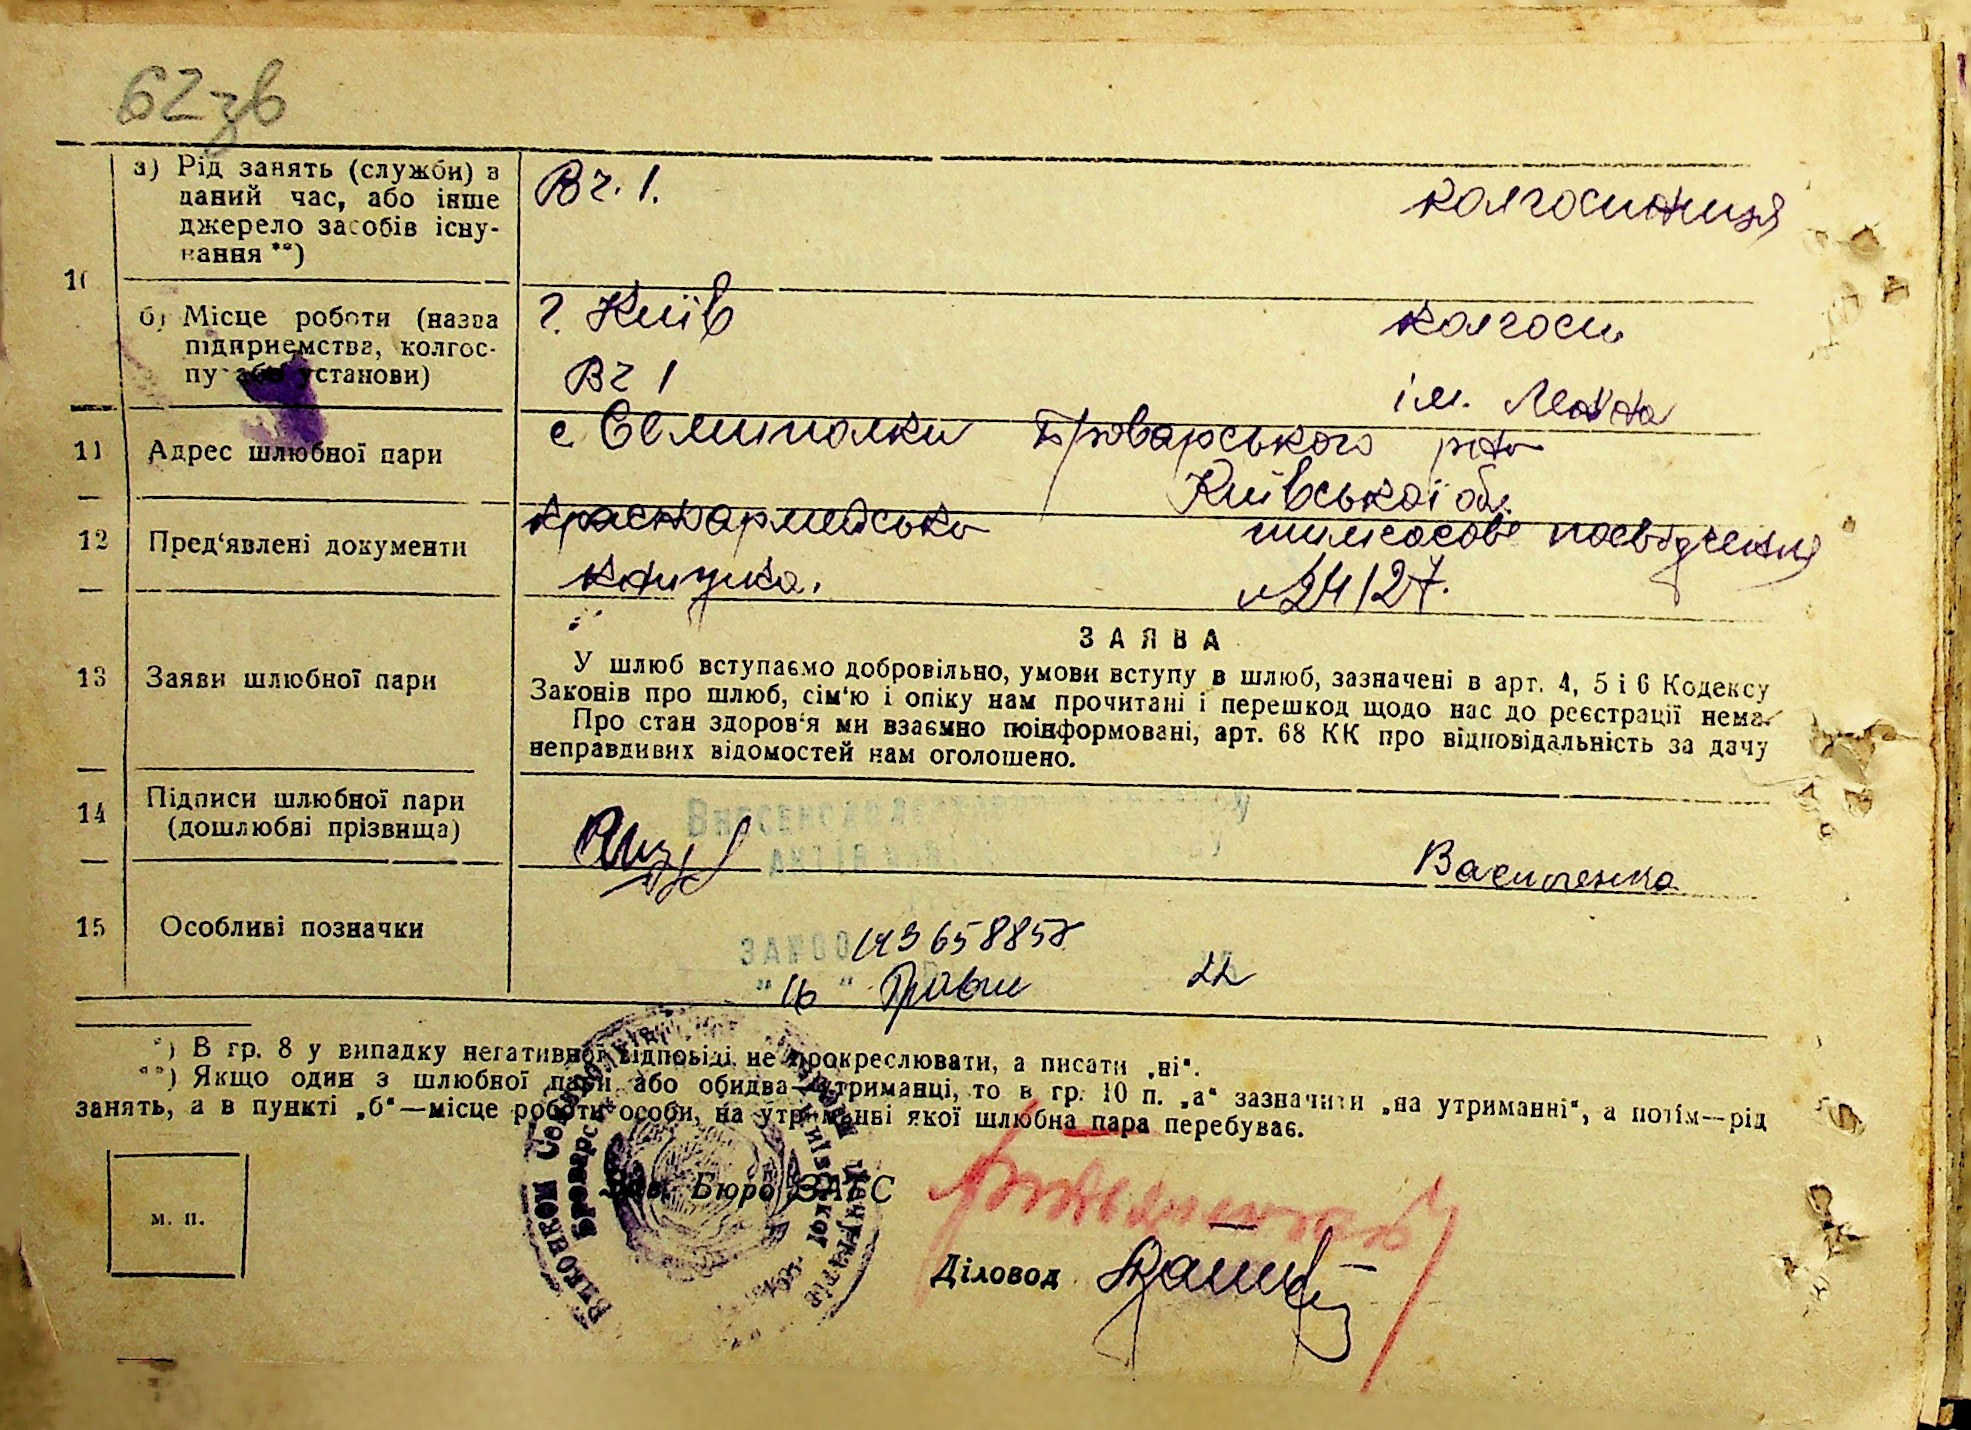 62зв
а) Рід занять (служби) в
даний час, або інше
джерело засобів існу-
вання **)
Вч. 1.
колгоспниця
10
б) Місце роботи (назва
підприємства, колгос-
пу або установи)
г. Київ
Вч 1
колгосп
ім. Леніна
11
Адрес шлюбної пари
с Семиполки Броварського р-ну
Київської обл.
12
Пред'явлені документи
красноармейська
книжка.
тимчасове посвідчення
№ 24127.
13
Заяви шлюбної пари
ЗАЯВА
У шлюб вступаємо добровільно, умови вступу в шлюб, зазначені в арт. 4, 5 і 6 Кодексу
Законів про шлюб, сім'ю і опіку нам прочитані і перешкод щодо нас до реєстрації нема.
Про стан здоров'я ми взаємно поінформовані, арт. 68 КК про відповідальність за дачу
неправдивих відомостей нам оголошено.
14
Підписи шлюбної пари
(дошлюбні прізвища)
Василенко
15
Особливі позначки
"16" Травня 22
*) В гр. 8 у випадку негативної відповіді не прокреслювати, а писати „ні“.
**) Якщо один з шлюбної пари або обидва—утриманці, то в гр. 10 п. „а“ зазначити „на утриманні“, а потім—рід
занять, а в пункті „б“—місце роботи особи, на утриманні якої шлюбна пара перебуває.
м. п.
Зав. Бюро ЗАГС
Діловод